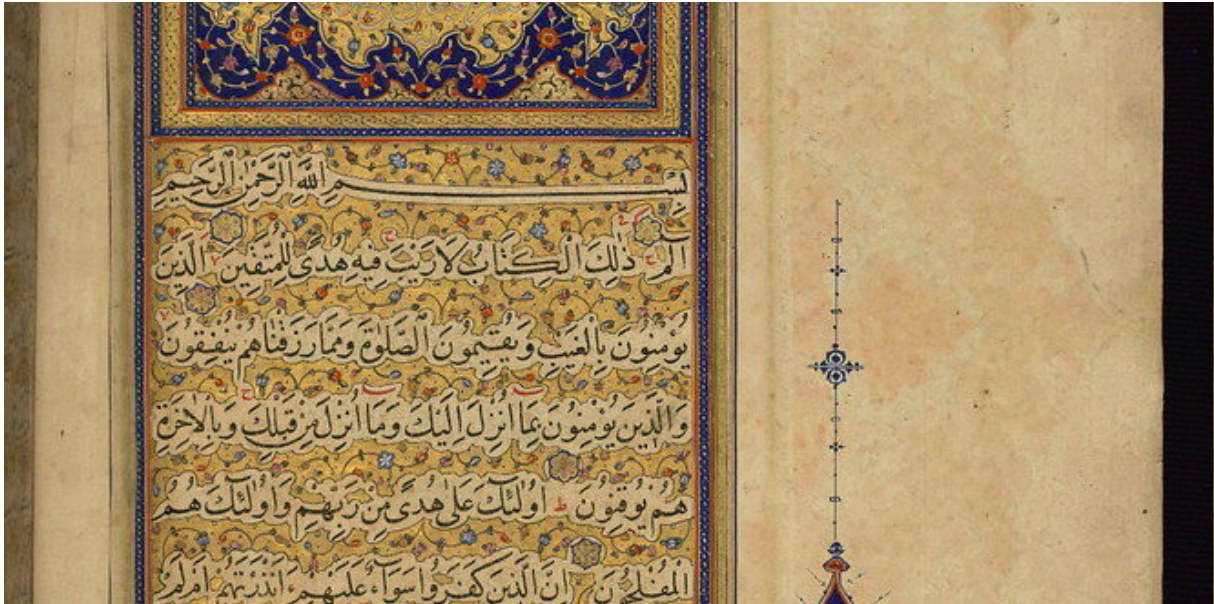 بِسْمِ اللَّهِ الرَّحْمٰنِ الرَّحِيمِ
الم ذٰلِكَ الْكِتَابُ لَا رَيْبَ فِيهِ هُدًى لِلْمُتَّقِينَ الَّذِينَ
يُؤْمِنُونَ بِالْغَيْبِ وَيُقِيمُونَ الصَّلٰوةَ وَمِمَّا رَزَقْنَاهُمْ يُنْفِقُونَ
وَالَّذِينَ يُؤْمِنُونَ بِمَا اُنْزِلَ اِلَيْكَ وَمَا اُنْزِلَ مِنْ قَبْلِكَ وَبِالْاٰخِرَةِ
هُمْ يُوقِنُونَ ط اُولٰئِكَ عَلٰى هُدًى مِنْ رَبِّهِمْ وَاُولٰئِكَ هُمُ
الْمُفْلِحُونَ اِنَّ الَّذِينَ كَفَرُوا سَوَاءٌ عَلَيْهِمْ ءَاَنْذَرْتَهُمْ اَمْ لَمْ